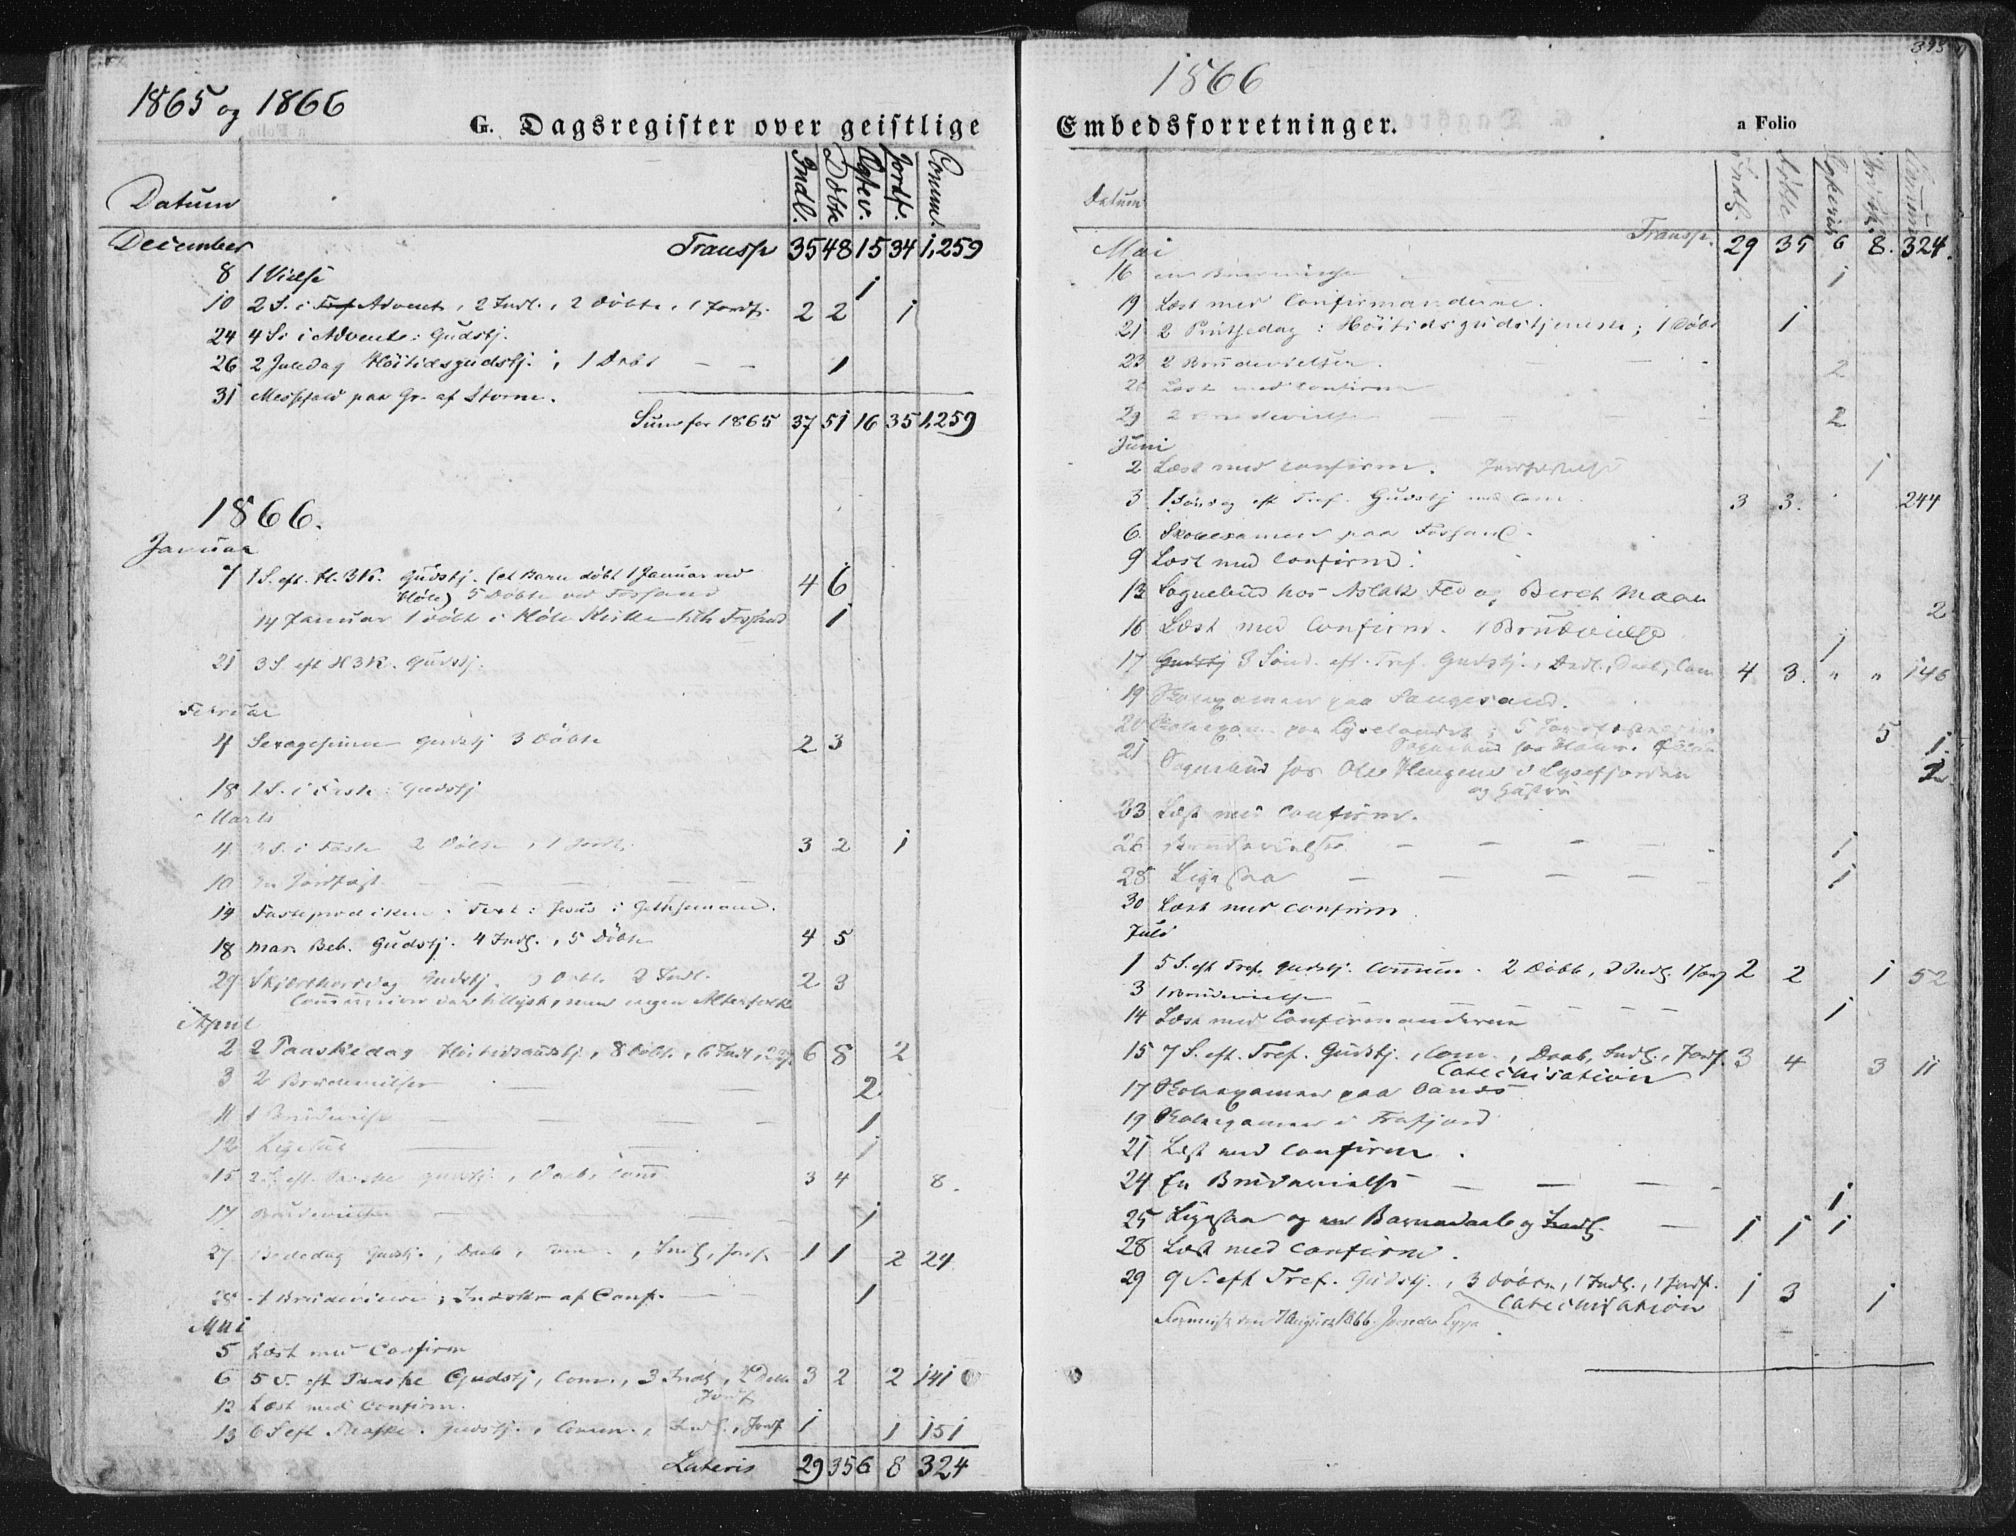 1865 og 1866
G. Dagsregister over geistlige
Datum Indl. Døbte Egtev. Jordf. Comm.
December Transp 35 48 15 34 1,259
8 1 Vielse 1
10 2 S. i Advent, 2 Indl., 2 Døbte, 1 Jordf. 2 2 1
24 4 S. i Advent: Gudstj.
26 2 Juledag Høitidsgudstj., 1 Døbt — — 1
31 Messefald paa Gr. af Storm.
Sum for 1865 37 51 16 35 1,259
1866.
Januar
7 1 S. eft. H. 3 K. Gudstj. (et Barn døbt 1 Januar ved
Høle) 5 Døbte ved Fossand 4 6
14 Januar 1 døbt i Høle Kirke 1
21 3 S. eft H 3 K. Gudstj.
Februar
4 Sexagesima Gudstj 3 Døbte 2 3
18 1 S. i Faste: Gudstj
Marts
4 3 S. i Faste 2 Døbte, 1 Jordf. 3 2 1
10 En Jordfæst — — — —
14 Fasteprædiken: Text: Jesus i Gethsemane.
18 Mar. Beb. Gudstj. 4 Indl., 5 Døbte 4 5
29 Skjærthorsdag Gudstj. 3 Døbte 2 Indl. 2 3
Communion var tillyst, men ingen Altersfolk
April
2 2 Paaskedag Høitidsgudstj, 8 Døbte, 6 Indl, 2 6 8 2
3 2 Brudevielser — — 2
11 1 Brudevielse — — — 1
12 Ligesaa — — 1
15 2 S. eft. Paaske Gudstj., Daab, Com 3 4 8.
17 Brudevielse — — — 1
27 Bededag Gudstj., Daab, Com., Indl, Jordf 1 1 2 24.
28 1 Brudevielse; Indskr. af Conf. — — 1
Mai
5 Læst med Confirm
6 5 S. eft Paaske Gudstj, Com., 3 Indl, 2 Døbte
Jordf 3 2 2 141
12 Læst med Confirm.
13 6 S eft Paaske. Gudstj., Comm., Indl., Jordf 1 1 151
Lateris 29 35 6 8 324
1866
Embedsforretninger.
a Folio
Datum Indl. Døbte Comm
Mai Transp. 29 35 6 8. 324.
16 en Brudevielse — 1
19 Læst med Confirmanderne.
21 2 Pintsedag: Høitidsgudstjeneste; 1 Døbt 1
23 2 Brudevielser. — — 2
26 Læst med Confirm
29 2 Brudevielser — — — 2
Juni
2 Læst med Confirm. Jordfæstelse 1
3 1 Søndag eft Tref. Gudstj med Com. 3 3. 244
6. Skoleexamen paa Fossand.
9 Læst med Confirm.
13 Sognebud hos Aslak Fed og Beret Maan 2
16 Læst med Confirm. 1 Brudevielse 1
17 3 Sønd. eft. Tref. Gudstj., Indl., Daab, Com 4 3. " " 146
19 Skoleexamen paa Songesand.
20 Skoleexam. paa Lyselandet; 5 Jordfæstelser 5
Sognebud hos 1
21 Sognebud hos Ole Haugene i Lysefjorden
og Hustru 2
23 Læst med Confirm.
26 Brudevielse — — — — 1
28 Ligesaa — — — — — 1
30 Læst med Confirm
Juli
1 5 S. eft Tref. Gudstj. Commun. 2 Døbte, 2 Indl. 1 Jordf 2 2 1 52
3 1 Brudevielse — — — — — 1
14 Læst med Confirmanderne
15 7 S. eft. Tref. Gudstj., Com., Daab, Indl., Jordf. 3 4 3 11
Catechisation
17 Skoleexamen paa Oanes
19 Skoleexamen i Frafjord
21 Læst med Confirm.
24 En Brudevielse — — — — 1
25 Ligesaa og en Barnedaab og Indl. — 1 1 1
28 Læst med Confirm.
29 9 S. eft Tref. Gudstj., 3 Døbte, 1 Indl., 1 Jordf. 1 3 1
Catechisation
den 7 August 1866.